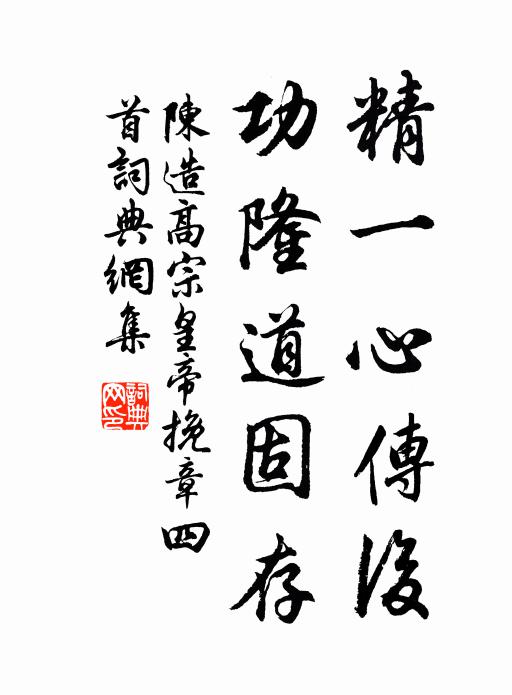 精一心傳後
功隆道固存
陳造高宗皇帝挽章四
首詞典網集
詞典網印